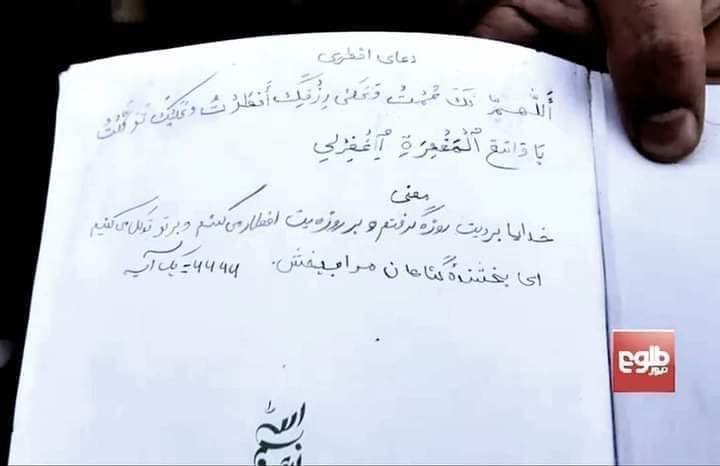 دعای افطری
أَللّهمَّ لَکَ صُمتُ وَعَلیٰ رِزْقِکَ أَفطَرْتُ وَعَلَیکَ تَوَکَّلْتُ
یَا وَاسِعَ ٱلْمَغْفِرَةِ اِغْفِرْلِي
معنی
خدایا بردیت روزه گرفتم و بر روزه یت افطار می کنم و بر تو توکل می کنیم
ای بخشندهٔ گناهان مرا ببخش. ۶۶۶۶ = یک آیه
طلوع
نیوز